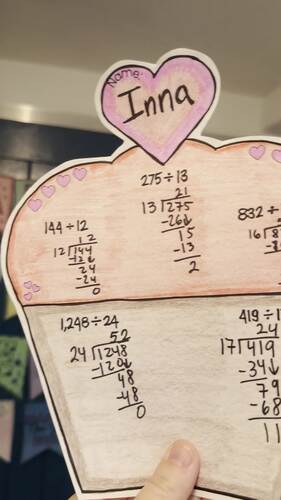 Name:
Inna
275÷13
21
13 275
-26↓
15
-13
2
144÷12
12
12 144
-12↓
24
-24
0
832÷
16 8
-8
1,248÷24
52
24 1248
-120↓
48
-48
0
419÷1
24
17 419
-34↓
79
-68
11